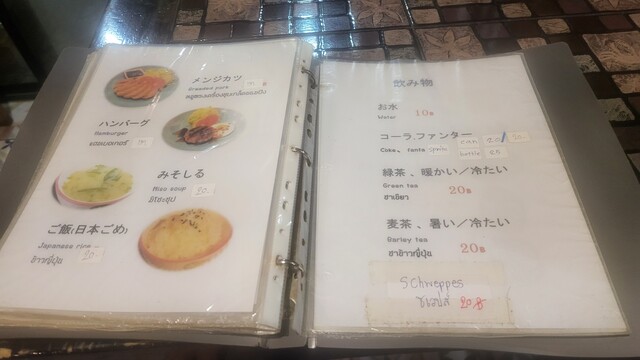 メンジカツ
Breaded pork
ハンバーグ
Hamburger
แฮมเบอเกอร์
みそしる
Miso soup 20.-
ซุิโซะซุป
ご飯(日本ごめ)
Japanese rice
ข้าวญี่ปุ่น 20
飲み物
お水
Water 10฿
コーラ.ファンター
Coke、 fanta sprite can 20/
bottle
緑茶 、暖かい/冷たい
Green tea 20฿
ชาเขียว
麦茶 、暑い/冷たい
Barley tea
ชาข้าวญี่ปุ่น 20฿
Schweppes
ชเวปส์ 20฿